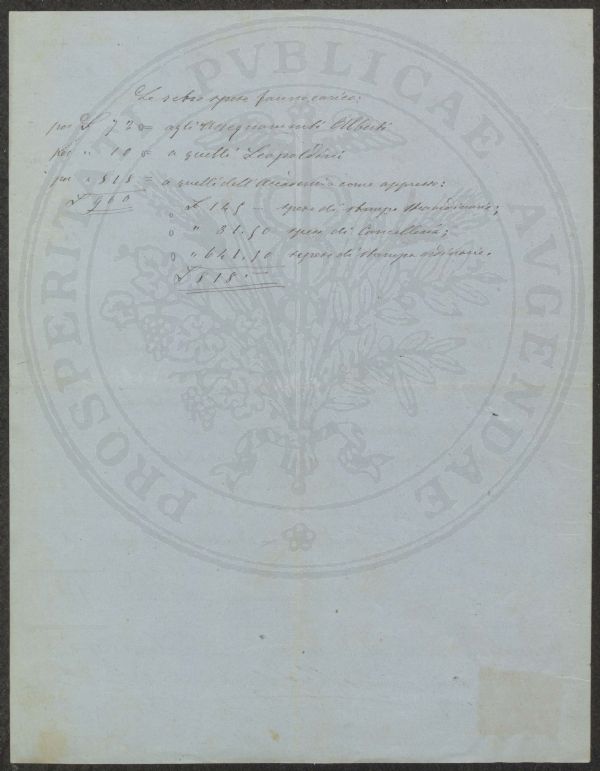 PROSPERITATI PVBLICAE AVGENDAE
Le retro spese fanno carico:
per £ 72 = agli Assegnamenti Alberti
per " 10 = a quelli Leopoldini
per " 818 = a quelli dell'Accademia come appresso:
£ 960
£ 145 — spese di stampe straordinarie;
" 31.50 spese di Cancelleria;
" 641.50 spese di stampe ordinarie.
£ 818. —